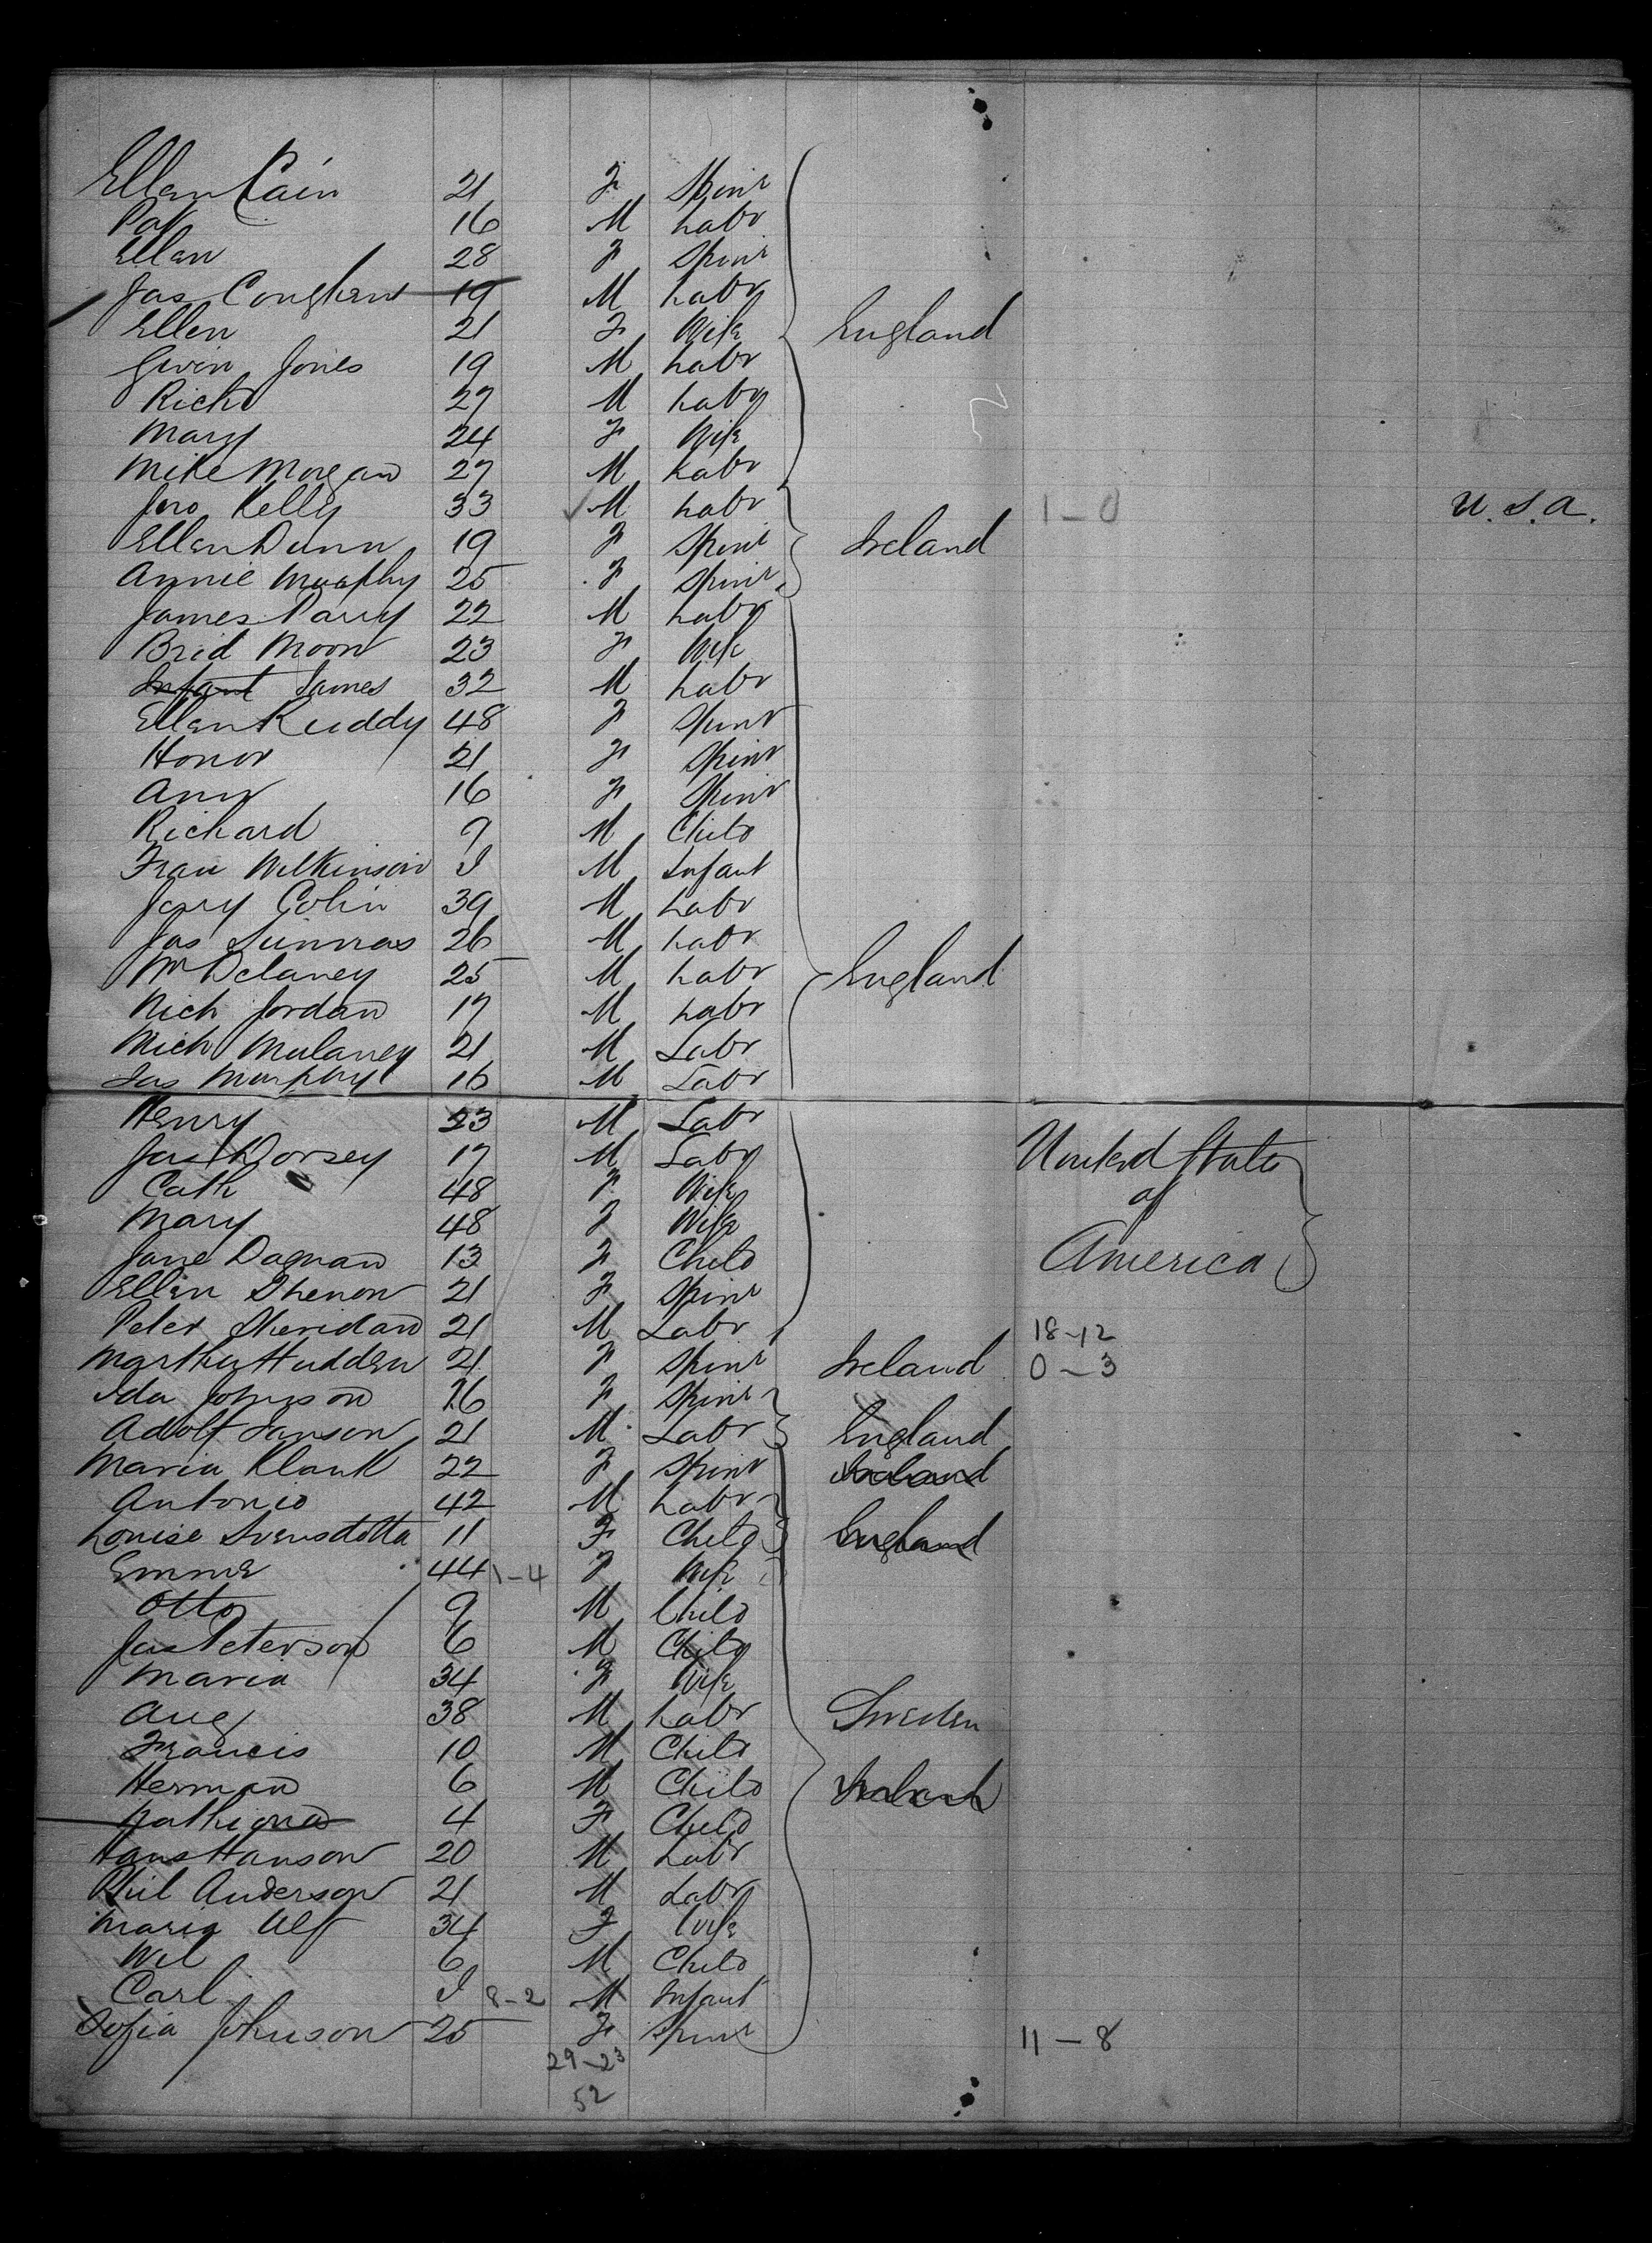 Ellen Cain 21 F Spinr
Pat 16 M Labr
Ellen 28 F Spinr
Jas Coughlin 19 M Labr
Ellen 21 F Wife England
Gwin Jones 19 M Labr
Richd 27 M Labr
Mary 24 F Wife
Mike Morgan 27 M Labr
Jno Kelly 33 M Labr 1-0 U.S.A.
Ellen Dunn 19 F Spinr Ireland
Annie Murphy 25 F Spinr
James Parry 22 M Labr
Brid Moon 23 F Wife
Infant James 32 M Labr
Ellen Ruddy 48 F Spinr
Honor 21 F Spinr
Ann 16 F Spinr
Richard 9 M Child
Fran Wilkinson I M Infant
Jary Colin 39 M Labr
Jas 26 M Labr
Wm Delaney 25 M Labr England
Rich Jordan 17 M Labr
Mich Mulaney 21 M Labr
Jas Murphy 16 M Labr
Henry 23 M Labr
Jas Dorsey 17 M Labr United States
Cath 48 F Wife of
Mary 48 F Wife
Jane 13 F Child America
Ellen 21 F Spinr
Peter Sheridan 21 M Labr 18-12
Martha Hudden 21 F Spinr Ireland 0-3
Ida Johnson 26 F Spinr
Adolf Janson 21 M Labr England
Maria Klank 22 F Spinr Ireland
Antonio 42 M Labr
Louise Svensdotta 11 F Child England
Emma 44 1-4 F Wife
Otto 9 M Child
Jas Peterson 6 M Child
Maria 34 F Wife
Aug 38 M Labr Sweden
Francis 10 M Child
Herman 6 M Child Ireland
4 F Child
Hans Hanson 20 M Labr
Phil Anderson 21 M Labr
Maria Alf 34 F Wife
Wil 6 M Child
Carl I 8-2 M Infant
Sofia Johnson 25 F Spinr 11-8
29-23
52